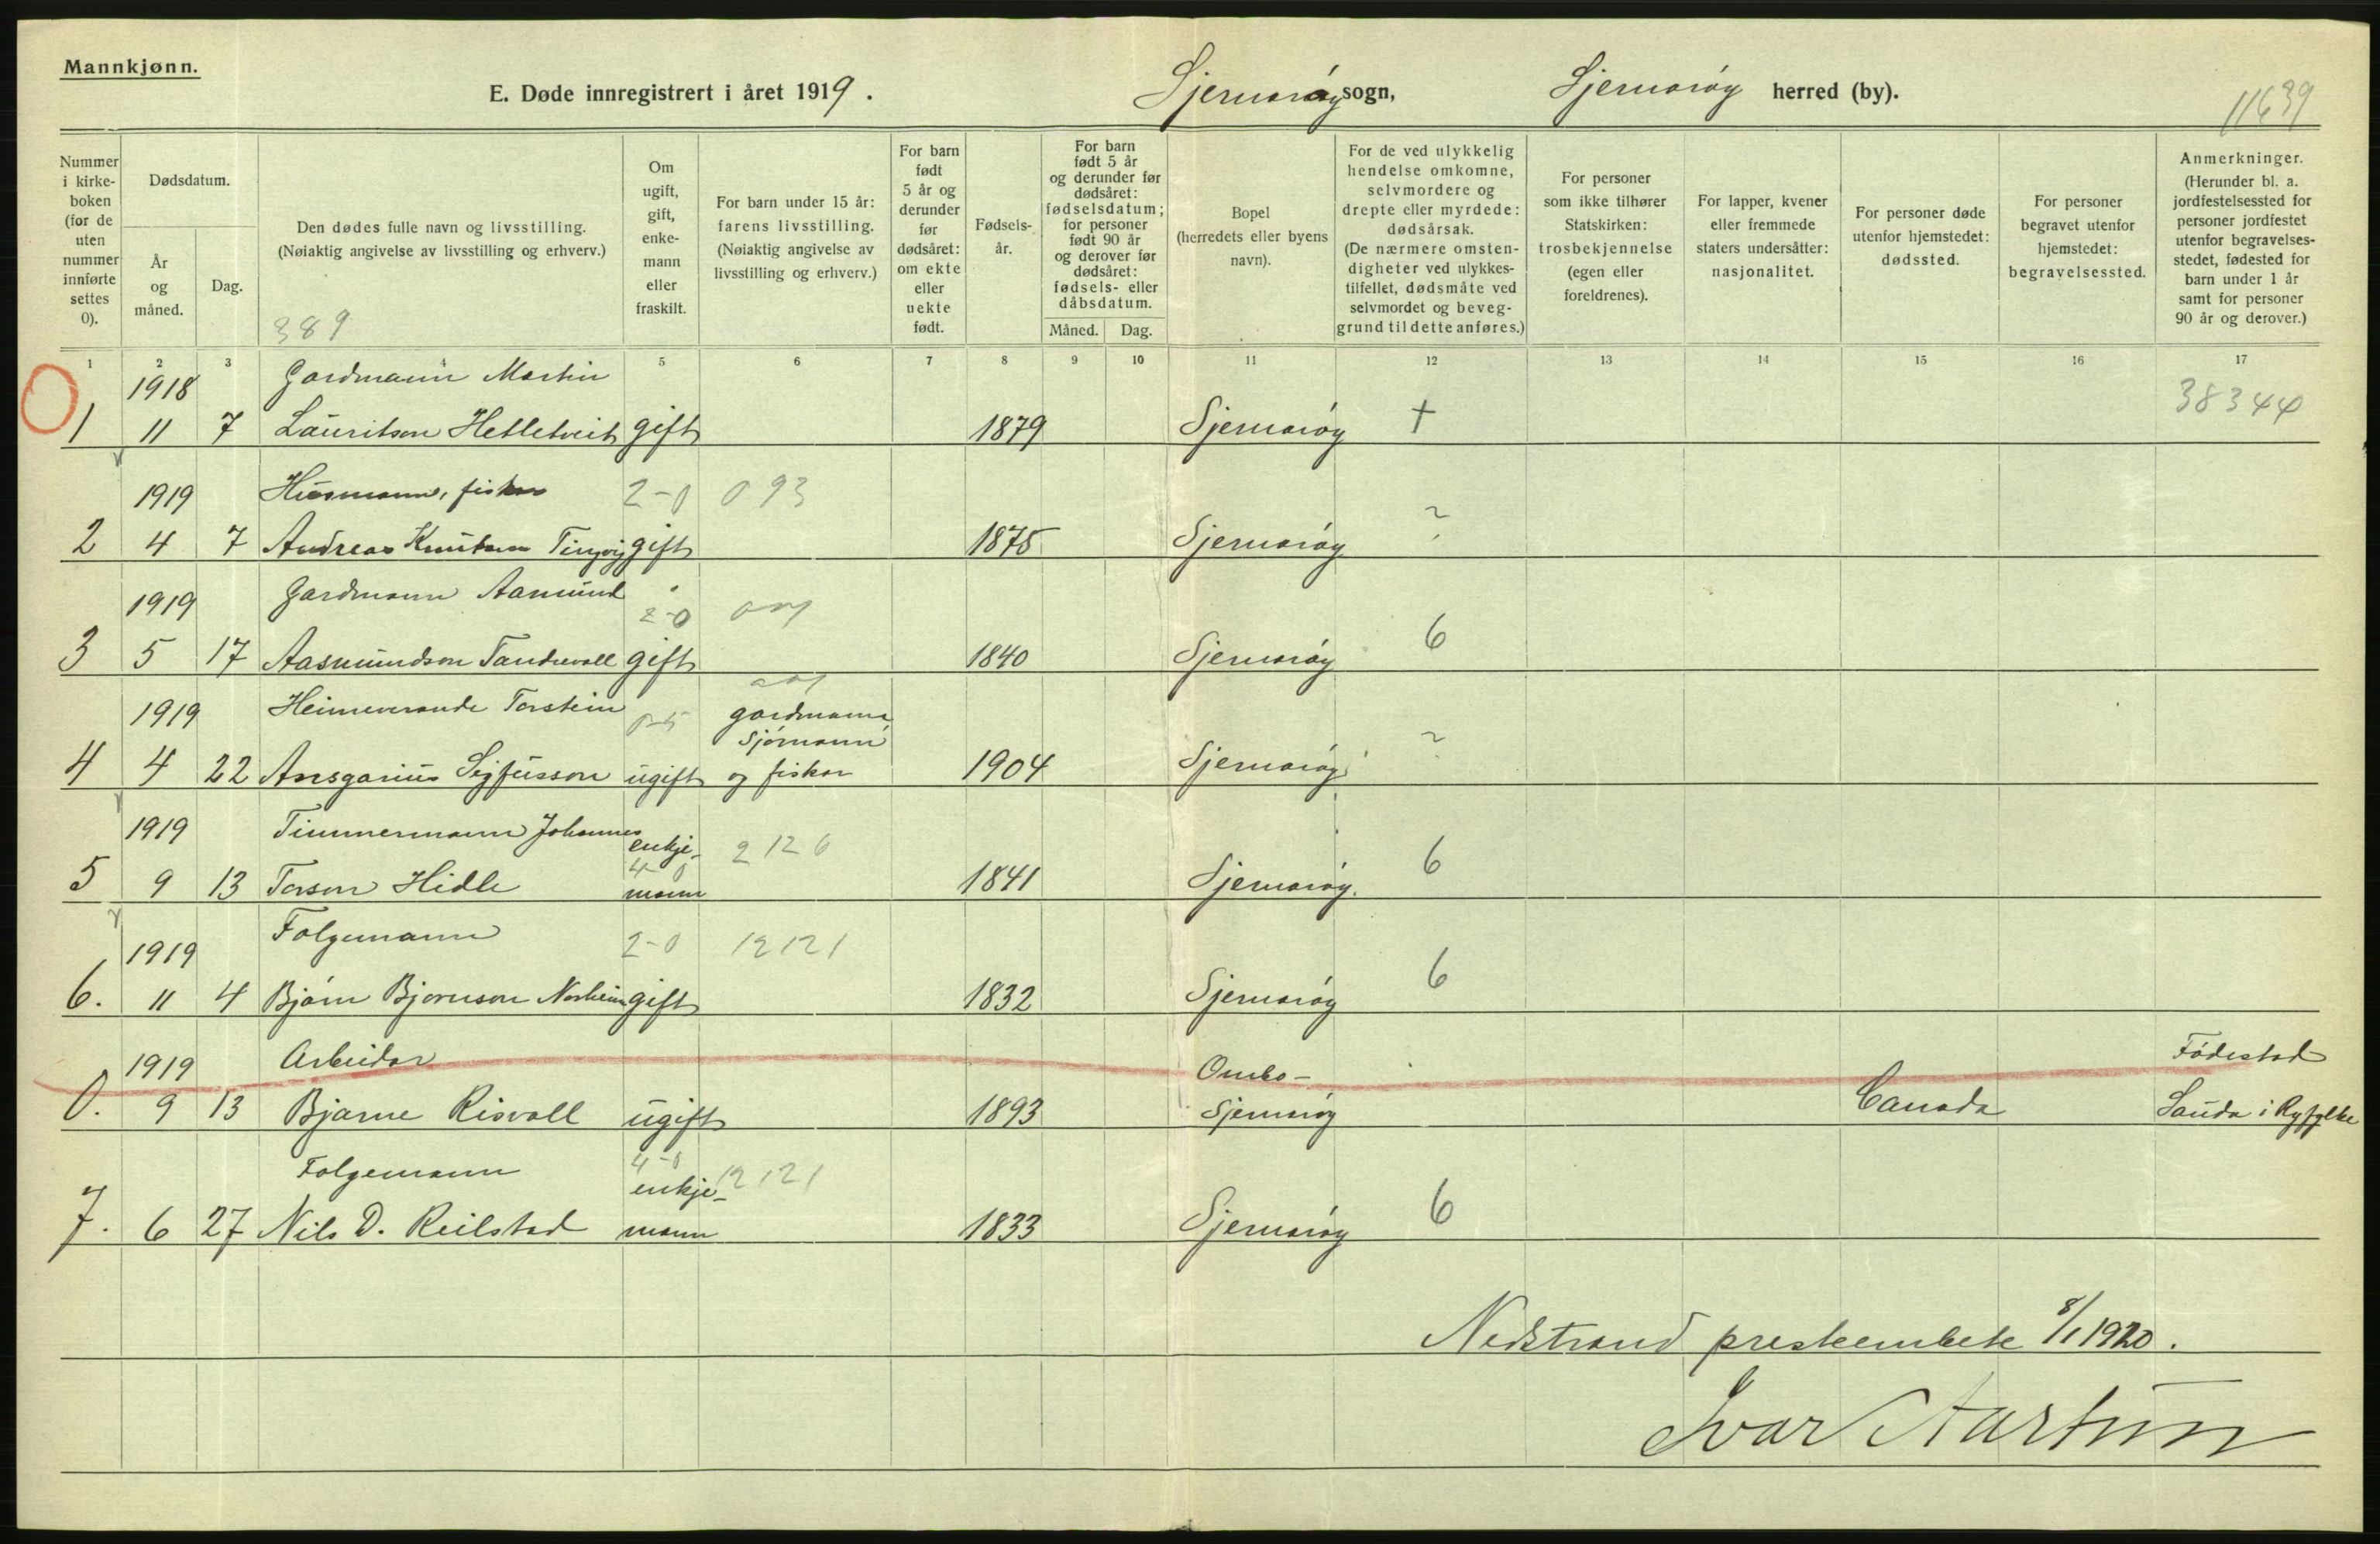 Mannkjønn.
E. Døde innregistrert i året 1919. Sjernarøy sogn, Sjernarøy herred (by).
11639
Nummer i kirke- boken (for de uten nummer innførte settes 0).
Dødsdatum.
År og måned.
Dag.
Den dødes fulle navn og livsstilling.
(Nøiaktig angivelse av livsstilling og erhverv.)
389
Om ugift, gift, enke- mann eller fraskilt.
For barn under 15 år: farens livsstilling. (Nøiaktig angivelse av livsstilling og erhverv.)
For barn født 5 år og derunder før dødsåret: om ekte eller uekte født.
Fødsels- år.
For barn født 5 år og derunder før dødsåret: fødselsdatum; for personer født 90 år og derover før dødsåret: fødsels- eller dåbsdatum.
Måned. Dag.
Bopel (herredets eller byens navn).
For de ved ulykkelig hendelse omkomne, selvmordere og drepte eller myrdede: dødsårsak. (De nærmere omsten- digheter ved ulykkes- tilfellet, dødsmåte ved selvmordet og beveg- grund til dette anføres.)
For personer som ikke tilhører Statskirken: trosbekjennelse (egen eller foreldrenes).
For lapper, kvener eller fremmede staters undersåtter: nasjonalitet.
For personer døde utenfor hjemstedet: dødssted.
For personer begravet utenfor hjemstedet: begravelsessted.
Anmerkninger. (Herunder bl. a. jordfestelsessted for personer jordfestet utenfor begravelses- stedet, fødested for barn under 1 år samt for personer 90 år og derover.)
1 2 3 4 5 6 7 8 9 10 11 12 13 14 15 16 17
1918 Gardmann Martin 38344
1 11 7 Lauritson Hetletveit gift 1879 Sjernarøy +
1919 Husmann, fisker 2-0 093
2 4 7 Andreas Knutson Tingvig gift 1875 Sjernarøy ?
1919 Gardmann Aamund 2-0
3 5 17 Aasmundson Tandrevold gift 1840 Sjernarøy 6
1919 Heimeverande Torstein 0-5 gardmann
sjømann
4 4 22 Ansgarius Sigfusson ugift og fiskar 1904 Sjernarøy ?
1919 Timmermann Johannes enkje- 2126
4-0
5 9 13 Torson Hidle mann 1841 Sjernarøy. 6
1919 Folgemann 2-0 12121
6. 11 4 Bjørn Bjornson Norheim gift 1832 Sjernarøy 6
1919 Arbeidar Ombo- Fødestad
0. 9 13 Bjarne Risvoll ugift 1893 Sjernarøy Canada Sauda i Ryfylke
Folgemann 4-0
enkje- 12121
7. 6 27 Nils D. Reilstad mann 1833 Sjernarøy 6
Nedstrand presteembete 8/1 1920.
Ivar Aartun